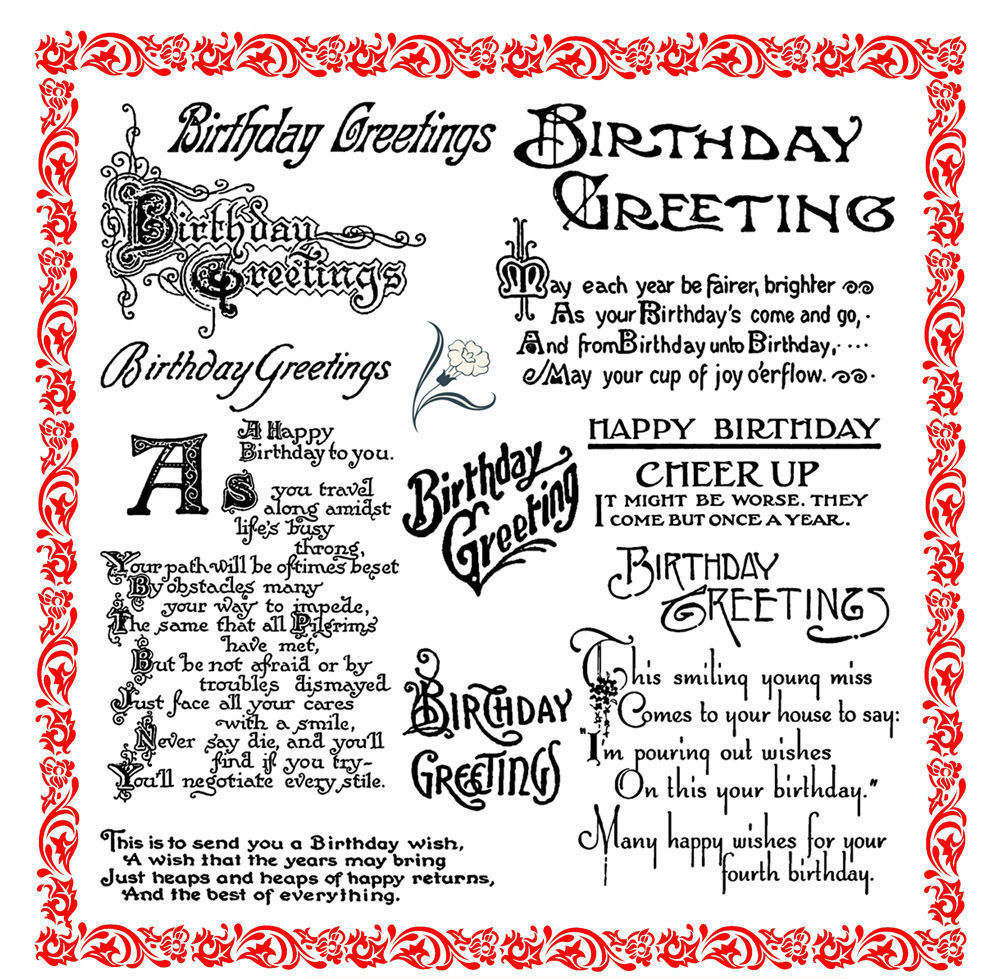 Birthday Greetings
BIRTHDAY
GREETING
Birthday
Greetings
May each year be fairer, brighter
As your Birthday's come and go,
And from Birthday unto Birthday,....
May your cup of joy o'erflow.
Birthday Greetings
A Happy
Birthday to you.
As you travel
along amidst
life's busy
throng,
Your path will be oftimes beset
By obstacles many
your way to impede,
The same that all Pilgrims
have met,
But be not afraid or by
troubles dismayed
Just face all your cares
with a smile,
Never say die, and you'll
find if you try-
You'll negotiate every stile.
Birthday
Greeting
HAPPY BIRTHDAY
CHEER UP
IT MIGHT BE WORSE. THEY
COME BUT ONCE A YEAR.
BIRTHDAY
GREETINGS
BIRTHDAY
GREETINGS
This smiling young miss
Comes to your house to say:
"I'm pouring out wishes
On this your birthday."
Many happy wishes for your
fourth birthday.
This is to send you a Birthday wish,
A wish that the years may bring
Just heaps and heaps of happy returns,
And the best of everything.